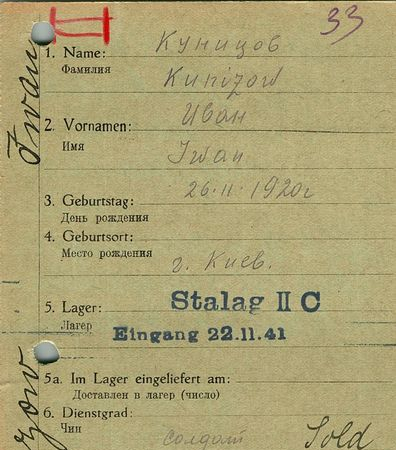 33
1. Name: Куницов
Фамилия Kunizow
Иван
2. Vornamen:
Имя Iwan
26.II.1920г
3. Geburtstag:
День рождения
4. Geburtsort:
Место рождения г. Киев.
5. Lager: Stalag II C
Лагерь Eingang 22.11.41
5a. Im Lager eingeliefert am:
Доставлен в лагер (число)
6. Dienstgrad:
Чин солдат Sold
Iwan
zow